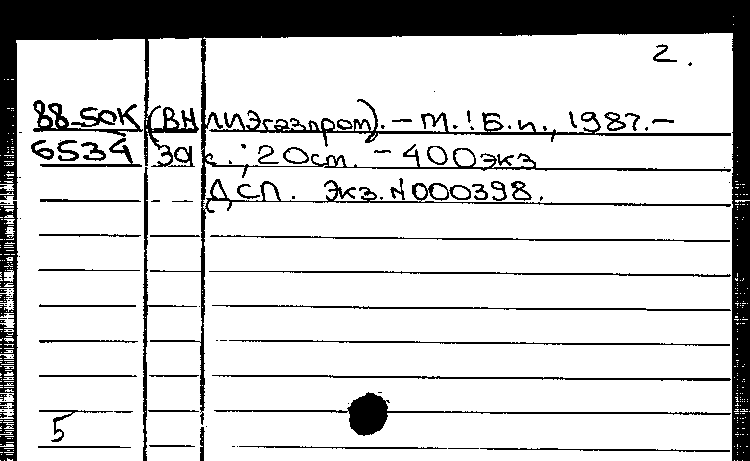 2.
88-50К (ВНИИЭгазпром). – М.: Б.и., 1987. –
6534 39 с.; 20 см. – 400 экз
ДСП. Экз. N000398.
5